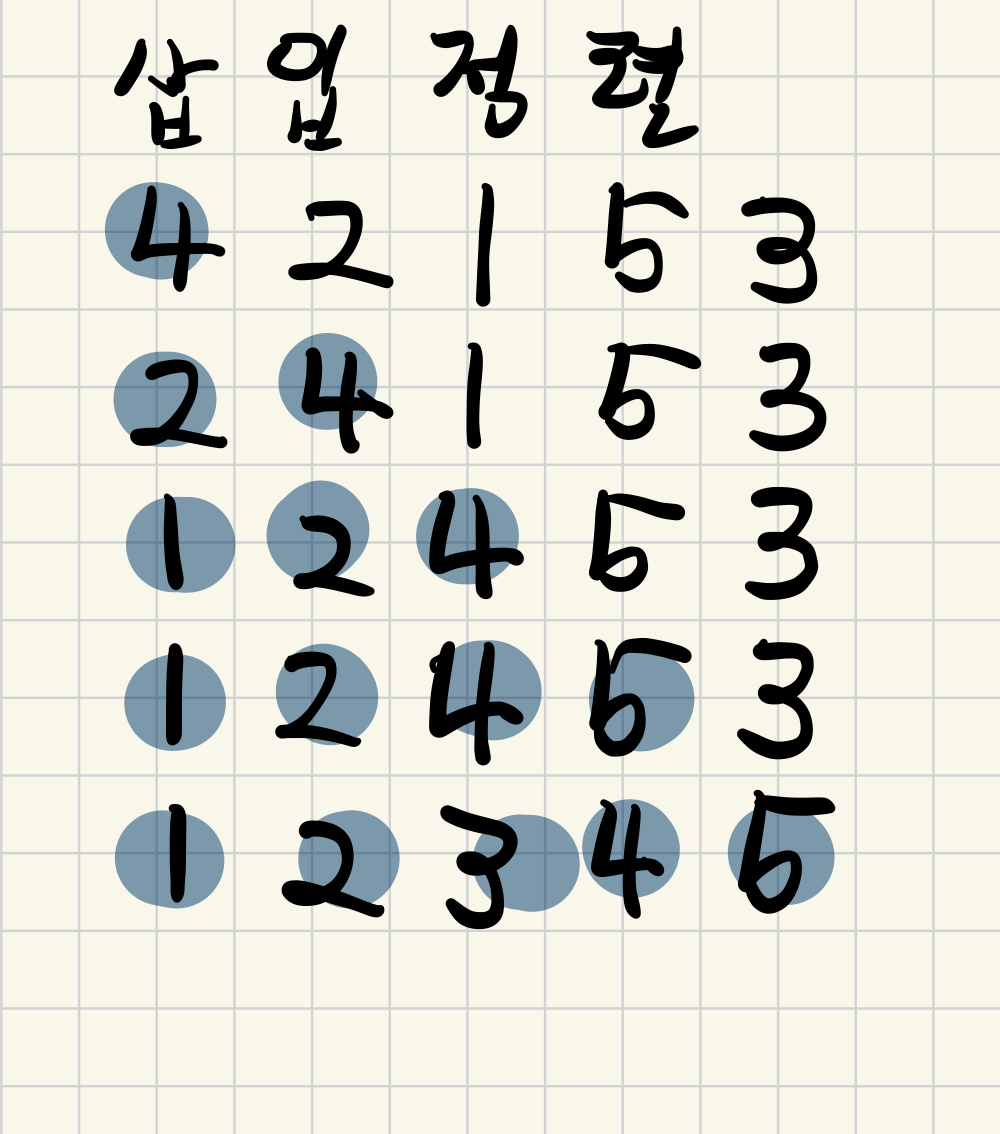 삽입정렬
4 2 1 5 3
2 4 1 5 3
1 2 4 5 3
1 2 4 5 3
1 2 3 4 5